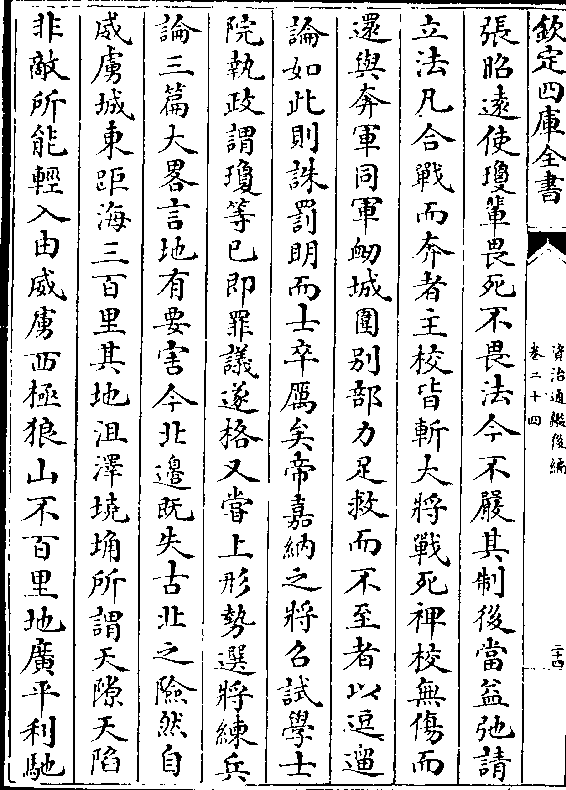 欽定四庫全書
資治通鑑後編
卷二十四
二十四
張昭逺使瓊輩畏死不畏法今不嚴其制後當益弛請
立法凡合戰而奔者主校皆斬大將戰死裨校無傷而
還與奔軍同軍衂城圍别部力足救而不至者以逗遛
論如此則誅罰明而士卒厲矣帝嘉納之將召試學士
院執政謂瓊等已即罪議遂格又嘗上形勢選將練兵
論三篇大畧言地有要害今北邊既失古北之險然自
威虜城東距海三百里其地沮澤墝埆所謂天隙天陷
非敵所能輕入由威虜西極狼山不百里地廣平利馳